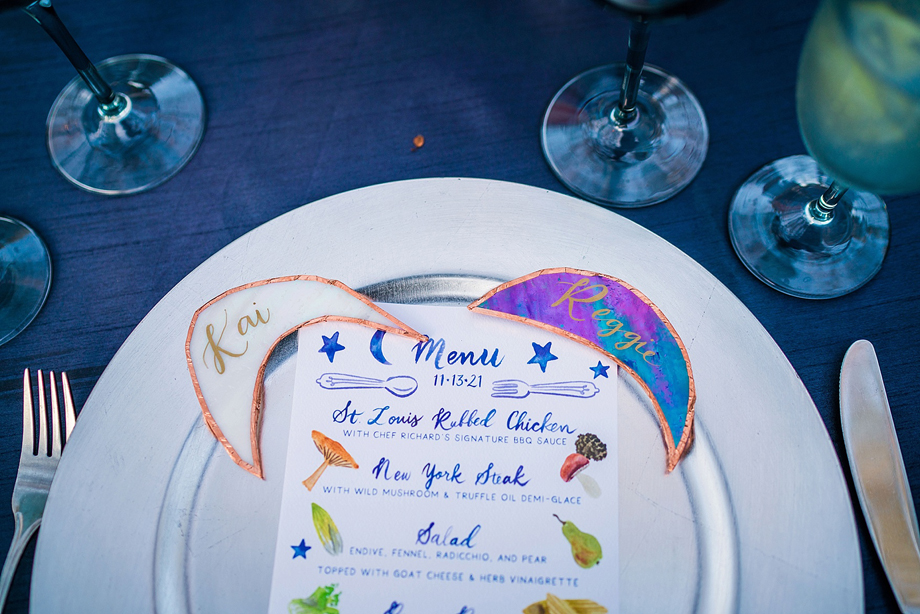 Kai
Reggie
Menu
11·13·21
St. Louis Rubbed Chicken
WITH CHEF RICHARD'S SIGNATURE BBQ SAUCE
New York Steak
WITH WILD MUSHROOM & TRUFFLE OIL DEMI-GLACE
Salad
ENDIVE, FENNEL, RADICCHIO, AND PEAR
TOPPED WITH GOAT CHEESE & HERB VINAIGRETTE